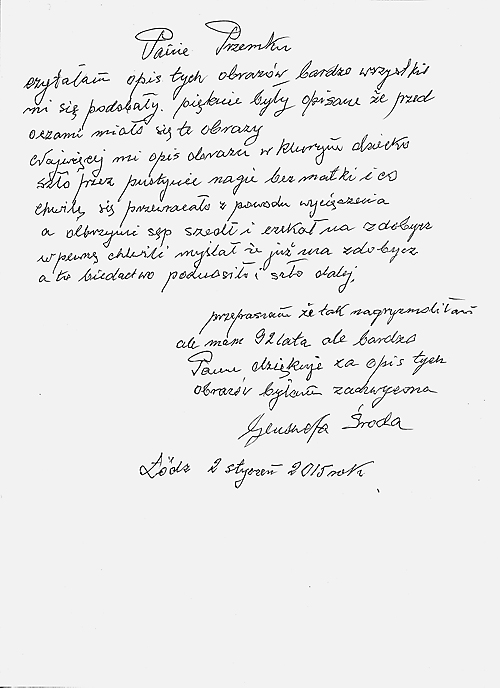 Panie Przemku
czytałam opis tych obrazów bardzo wszystkie
mi się podobały. pięknie były opisane że przed
oczami miało się te obrazy
Najwięcej mi opis obrazu w którym dziecko
szło przez pustynie nagie bez matki i co
chwilę się przewracało z powodu wycięczenia
a olbrzymi sęp szedł i czekał na zdobycz
w pewnej chwili myślał że już ma zdobycz
a to biedactwo podnosiło i szło dalej,
przepraszam że tak nagryzmoliłam
ale mam 92 lata ale bardzo
Panu dziękuje za opis tych
obrazów byłam zachwycona
Środa
Łódź 2 styczeń 2015 rok